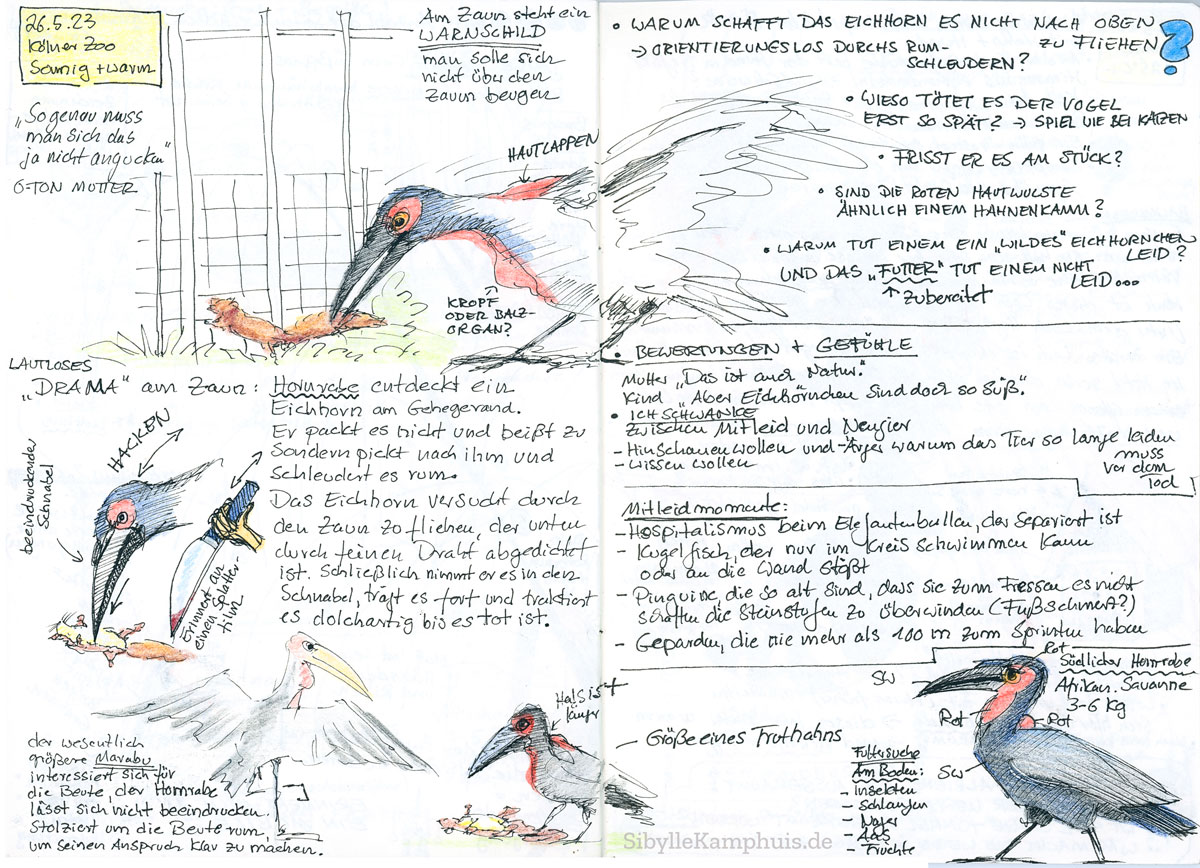 26.5.23
Kölner Zoo
Sonnig + warm
„So genau muss
man sich das
ja nicht angucken"
O-TON MUTTER
Am Zaun steht ein
WARNSCHILD
man solle sich
nicht über den
Zaun beugen
HAUTLAPPEN
KROPF
ODER BALZ-
ORGAN?
LAUTLOSES
„DRAMA" am Zaun: Hornrabe entdeckt ein
Eichhorn am Gehegerand.
Er packt es nicht und beißt zu
sondern pickt nach ihm und
schleudert es rum.
Das Eichhorn versucht durch
den Zaun zo fliehen, der unten
durch feinen Draht abgedichtet
ist. Schließlich nimmt er es in den
Schnabel, trägt es fort und traktiert
es dolchartig bis es tot ist.
beeindruckender
Schnabel
HACKEN
Erinnert an
einen Splatter-
film
der wesentlich
größere Marabu
interessiert sich für
die Beute, der Hornrabe
lässt sich nicht beeindrucken.
Stolziert um die Beute rum,
um seinen Anspruch klar zu machen.
Hals ist
• WARUM SCHAFFT DAS EICHHORN ES NICHT NACH OBEN
ZU FLIEHEN ?
→ ORIENTIERUNGSLOS DURCHS RUM-
SCHLEUDERN?
• WIESO TÖTET ES DER VOGEL
ERST SO SPÄT? → SPIEL WIE BEI KATZEN
• FRISST ER ES AM STÜCK?
• SIND DIE ROTEN HAUTWULSTE
ÄHNLICH EINEM HAHNENKAMM?
• WARUM TUT EINEM EIN „WILDES" EICHHÖRNCHEN
LEID?
UND DAS „FUTTER" TUT EINEM NICHT
LEID...
↑ zubereitet
• BEWERTUNGEN + GEFÜHLE
Mutter „Das ist auch Natur."
Kind „Aber Eichhörnchen sind doch so süß".
• ICH SCHWANKE
zwischen Mitleid und Neugier
- Hinschauen wollen und - Ärger warum das Tier so lange leiden
muss
vor dem
Tod
- wissen wollen
Mitleidmomente:
- Hospitalismus beim Elefantenbullen, der separiert ist
- Kugelfisch, der nur im Kreis schwimmen kann
oder an die Wand stößt
- Pinguine, die so alt sind, dass sie zum Fressen es nicht
schaffen die Steinstufen zo überwinden (Fußschmerz?)
- Geparden, die nie mehr als 100 m zum Sprinten haben
Rot
Südlicher Hornrabe
Afrikan. Savanne
3-6 kg
SW
Rot
Rot
SW
- Größe eines Truthahns
Futtersuche
Am Boden:
- Insekten
- Schlangen
- Nager
- Aas
- Früchte
SibylleKamphuis.de